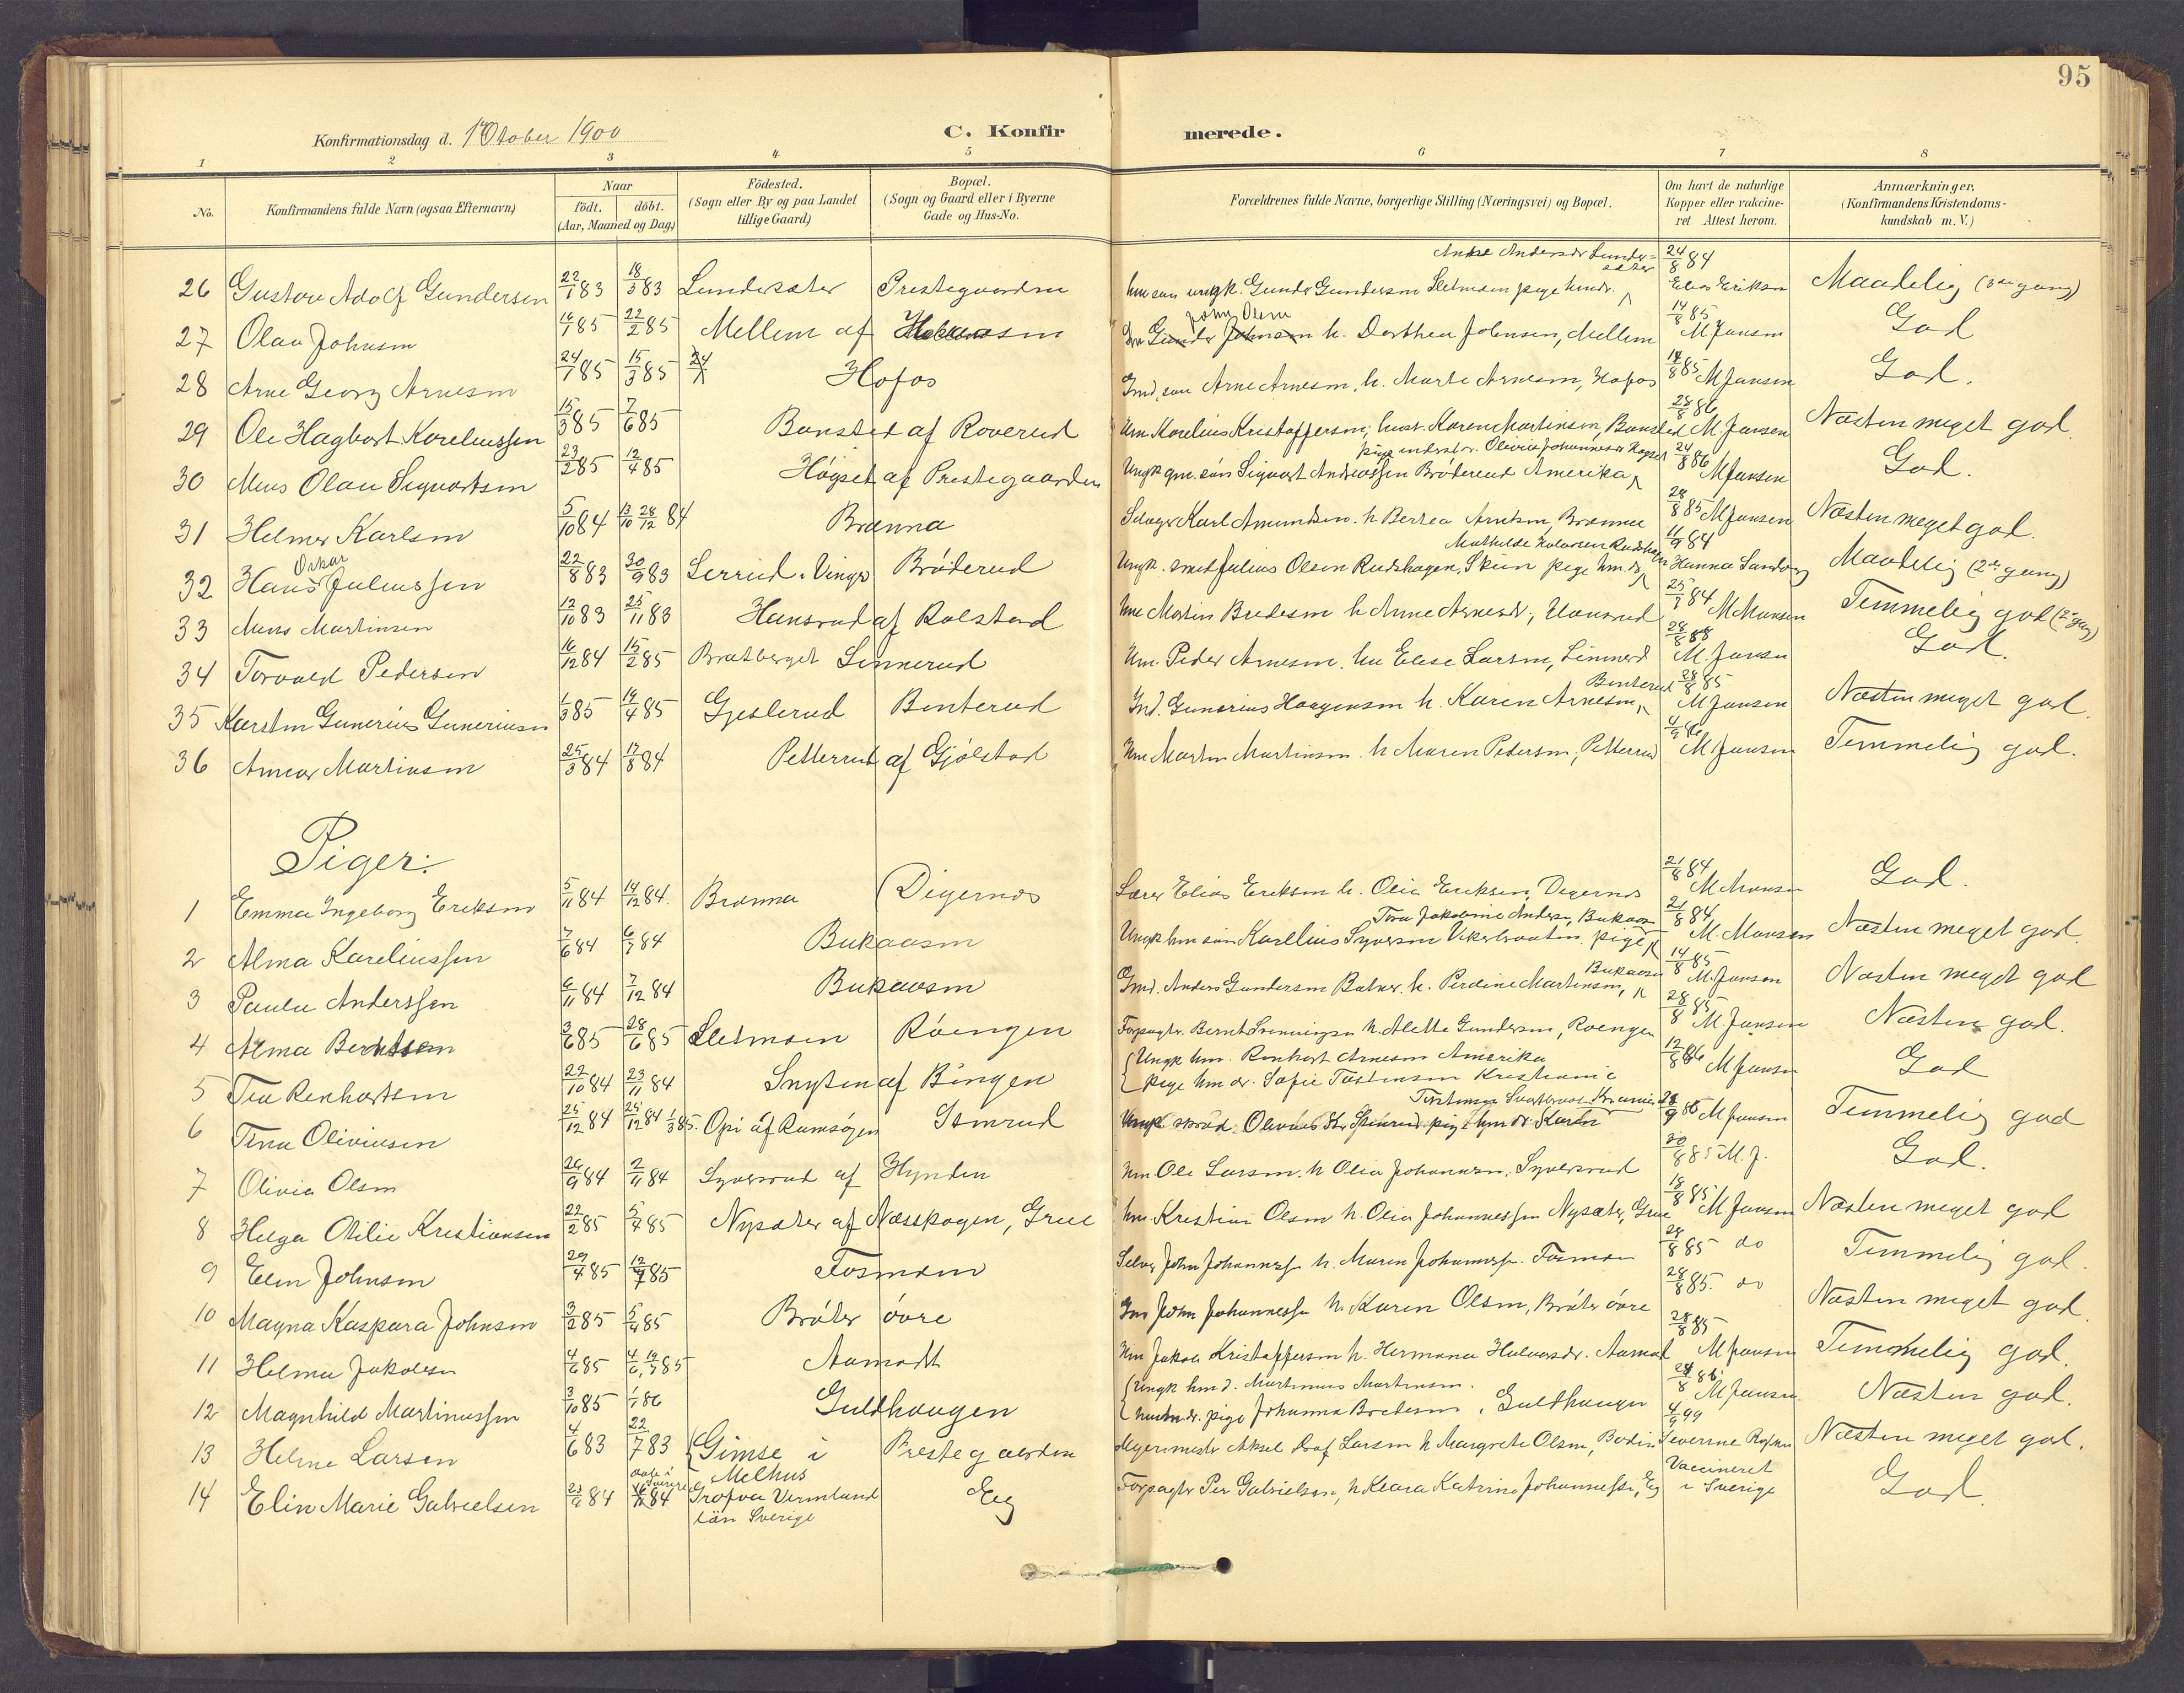 95
Konfirmationsdag d. 1 Oktober 1900
C. Konfirmerede.
1 2 3 4 5 6 7 8
No. Konfirmandens fulde Navn (ogsaa Efternavn) Naar födt. döbt. (Aar, Maaned og Dag) Födested. (Sogn eller By og paa Landet tillige Gaard) Bopæl. (Sogn og Gaard eller i Byerne Gade og Hus-No. Forældrenes fulde Navne, borgerlige Stilling (Næringsvei) og Bopæl. Om havt de naturlige Kopper eller vaccineret Attest herom. Anmærkninger. (Konfirmandens Kristendomskundskab m. V.)
26 Gustav Adolf Gundersen 22/1 83 18/3 83 Lundersæter Prestegaarden ungk. Gunder Gundersen Sletmoen pige Andersdr Lundersæter 24/8 84 Elias Eriksen Maadelig (3die gang)
27 Olav Johnsen 16/1 85 22/2 85 Mellem af John Olsen h. Dorthea Johnsen, Mellem 14/8 85 M Jansen God
28 Arne Georg Arnesen 24/1 85 15/3 85 Hofos Arne Arnesen, h. Marte Arnesen, Hofos 14/8 85 M Jansen God.
29 Ole Hagbart Koreliussen 15/3 85 7/6 85 Bansted af Roverud Korelius Kristoffersen, hust. Karen Martinsen Bansted 28/8 86 M. Jansen Næsten meget god.
30 Mens Olau Sigvartsen 23/2 85 12/4 85 Høgset af Prestegaarden Ungk gm. søn Sigvart Andreassen Brøderud Amerika, pige Olivia Johannesdr Høgset 24/8 86 M Jansen God.
31 Helmer Karlsen 5/10 84 13/10 28/12 84 Brænna Selveger Karl Amundsen h Bertea Arntsen, Brænna 28/8 85 M Jansen Næsten meget god.
32 Hans Oskar Juliussen 22/8 83 30/9 83 Lerrud. Vinger Brøderud Ungk. smed Julius Olsen Rudshagen, Skien pige hm. dr Mathilde Halvorsen Rudshagen 11/9 84 Hanna Sandberg Maadelig (2den gang)
33 Mens Martinsen 12/10 83 25/11 83 Hansrud af Rolstad hm Martin Bredesen h Anne Arnesdr, Hansrud 25/7 84 M Monsen Temmelig god (2den gang)
34 Torvald Pedersen 16/12 84 15/2 85 Bratberget Linnerud Hm. Peder Arnesen. hu Elese Larsen, Linnerud 28/8 88 M. Jansen God.
35 Karsten Gunerius Gunerinsen 1/3 85 14/4 85 Gjeslerud Benterud Ind. Gunerius Haagensen h. Karen Arnesen, Benterud 28/8 85 M Jansen Næsten meget god.
36 Annar Martinsen 25/3 84 17/8 84 Petterrud af Gjölstad Hm Morten Martinsen h Maren Pedersen, Petterrud M. Jansen Temmelig god.
Piger:
1 Emma Ingeborg Eriksen 5/11 84 14/12 84. Brænna Digernes Lærer Elias Eriksen h. Olia Eriksen, Degernes 21/8 84 M Monsen God.
2 Alma Kareliussen 7/6 84 6/7 84 Bukaasen Ungk hm søn Karelius Syversen pige Tora Jakobine Anders. Bukaasen 21/8 84 M. Monsen Næsten meget god.
3 Paula Anderssen 6/11 84 7/12 84 Bukaasen Ind. Anders Gundersen h. Perdine Martinsen, Bukaasen 14/8 85 M. Jansen Næsten meget god
4 Alma Berntsen 3/6 85 28/6 85 Sletmoen Röengen Forpagter. Bernt Svenningsen h. Alette Gundersen, Roengen 28/8 85 M. Jansen Næsten god.
5 Tea Renhartsen 22/10 84 23/11 84 Snyten af Bingen Ungk hm. Renhart Arnesen Amerika pige hm dr. Sofie Tostensen Kristiania 12/8 86 M Jansen God
6 Tina Oliviusen 25/12 84 25/12 84 1/3 85. Opi af Ramsøgen Stenrud Ungk skræd. Olivius pige hm dr. Karen Tostensen Kr.ania 28/9 86 M Jansen Temmelig god
7 Olivia Olsen 26/9 84 2/11 84 Syversrud af Hynden Hm Ole Larsen. h Olia Johannesen, Syversrud 30/8 85 M. J. God.
8 Helga Otilie Kristiansen 22/2 85 5/4 85 Nysæter af Næsskogen, Grue hm. Kristian Olsen h. Olia Johannessen Nysæter, Grue 18/8 85 M Jansen Næsten meget god
9 Elen Johnsen 29/4 85 12/7 85 Tosmoen Selveg John Johannesse h. Maren Johannessen. Tosmoen 28/8 85 do Temmelig god.
10 Magna Kaspara Johnsen 3/2 85 5/4 85 Bråter övre Ind John Johannessen h. Karen Olsen, Bråter övre 28/8 85. do Næsten meget god.
11 Helma Jakobsen 4/6 85 4/6, 19/7 85 Aamodt Hm Jakob Kristoffersen h. Hermana Halvorsdr. Aamot 28/8 85 M Jansen Temmelig god.
12 Magnhild Martinussen 3/10 85 1/1 86 Guldhaugen Ungk hm d. Martinus Martinsen. pige Johanna Bredesen, Guldhaugen 28/8 86 M Jansen Næsten god.
13 Helene Larsen 4/6 83 22/7 83 Gimse i Melhus Prestegaarden Meierimester Aksel Olaf Larsen h Margrete Olsen, Bodin 4/9 99 Severine Næsten meget god.
14 Elin Marie Gabrielsen 23/9 84 84 døbt i Sverige Trofva Vermland län Sverige Eig Forpagter Per Gabrielsen, h Klara Katrina Johannessen, Eig Vaccineret i Sverige God.